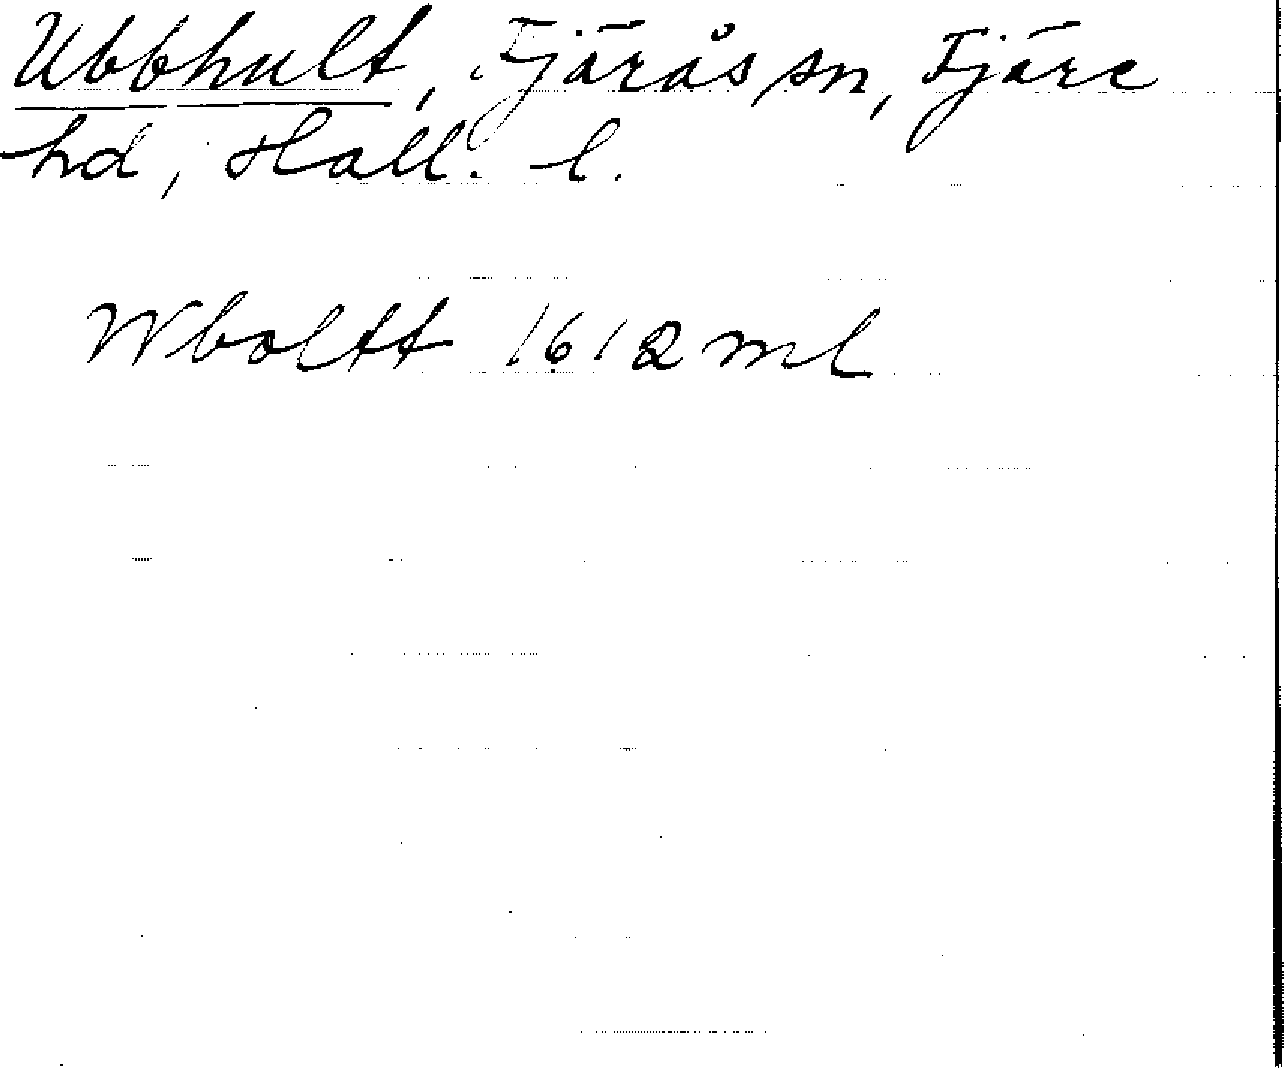 Ubbhult, Fjärås sn, Fjäre
hd, Hall. l.
Wboltt 1612 ml